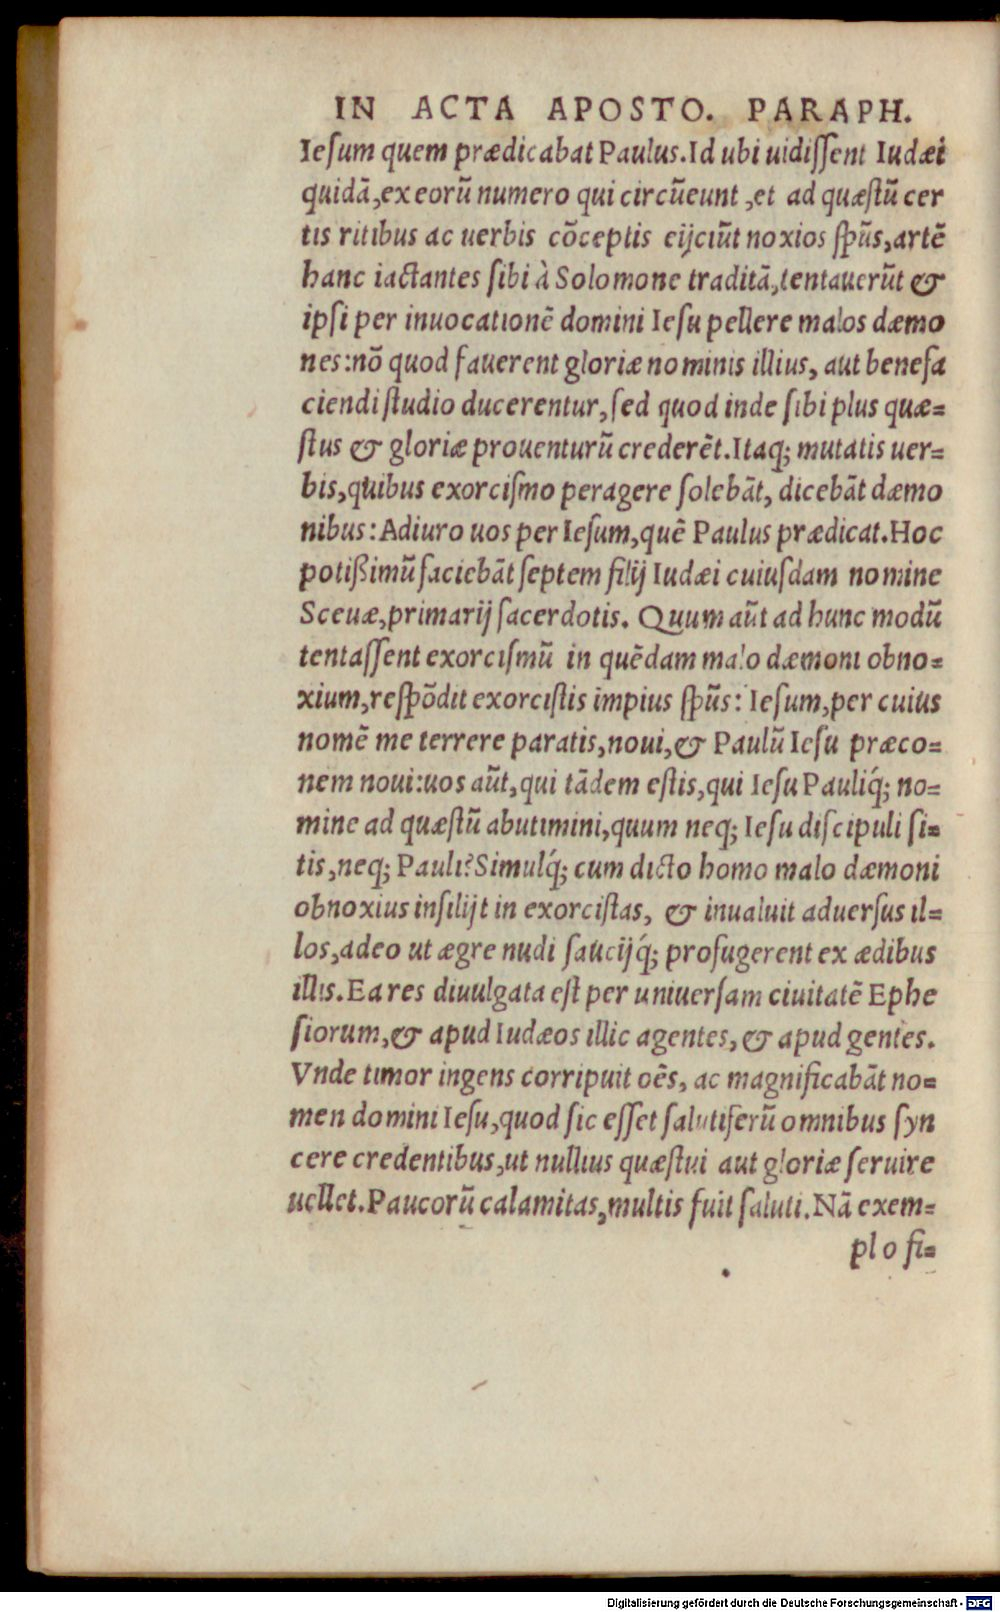 IN ACTA APOSTO. PARAPH.
Ieſum quem prædicabat Paulus.Id ubi uidiſſent Iudæi
quidã,ex eorũ numero qui circũeunt ,et ad quæſtũ cer
tis ritibus ac uerbis cõceptis eijciũt noxios ſpũs,artẽ
hanc iactantes ſibi à Solomone traditã,tentauerũt &
ipſi per inuocationẽ domini Ieſu pellere malos dæmo
nes:nõ quod fauerent gloriæ nominis illius, aut benefa
ciendi ſtudio ducerentur,ſed quod inde ſibi plus quæ=
ſtus & gloriæ prouenturũ crederẽt.Itaq; mutatis uer=
bis,quibus exorciſmo peragere ſolebãt, dicebãt dæmo
nibus: Adiuro uos per Ieſum,quẽ Paulus prædicat.Hoc
potißimũ faciebãt ſeptem filij Iudæi cuiuſdam nomine
Sceuæ,primarij ſacerdotis. Quum aũt ad hunc modũ
tentaſſent exorciſmũ in quẽdam malo dæmoni obno=
xium,reſpõdit exorciſtis impius ſpũs: Ieſum,per cuius
nomẽ me terrere paratis,noui,& Paulũ Ieſu præco=
nem noui:uos aũt,qui tãdem eſtis,qui Ieſu Pauliq́; no=
mine ad quæſtũ abutimini,quum neq; Ieſu diſcipuli ſi=
tis,neq; Pauli?Simulq́; cum dicto homo malo dæmoni
obnoxius inſilijt in exorciſtas, & inualuit aduerſus il=
los,adeo ut ægre nudi ſaucijq́; profugerent ex ædibus
illis.Ea res diuulgata eſt per uniuerſam ciuitatẽ Ephe
ſiorum,& apud Iudæos illic agentes, & apud gentes.
Vnde timor ingens corripuit oẽs, ac magnificabãt no=
men domini Ieſu,quod ſic eſſet ſalutiferũ omnibus ſyn
cere credentibus,ut nullius quæſtui aut gloriæ ſeruire
uellet.Paucorũ calamitas,multis fuit ſaluti.Nã exem=
plo fi=
Digitalisierung gefördert durch die Deutsche Forschungsgemeinschaft - DFG